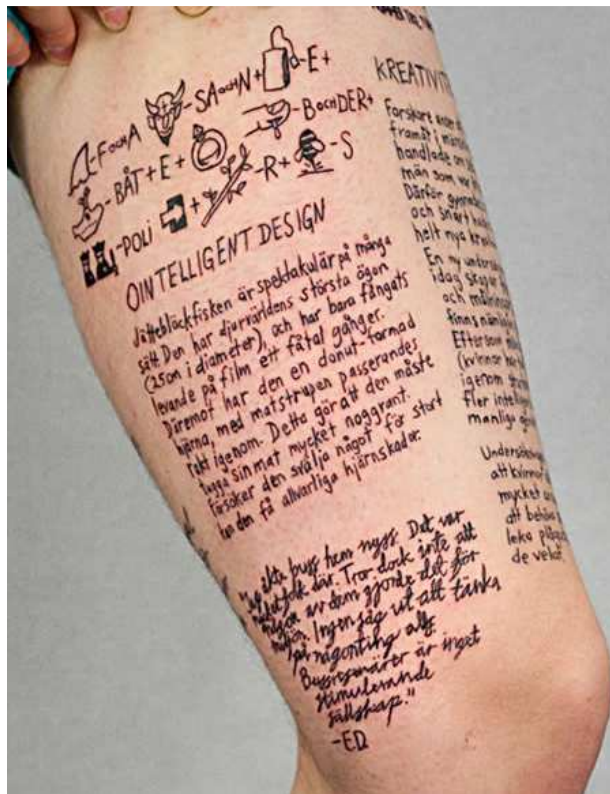 -FOCHA -SAOCHN+ -E+
-BÅT+E+ -BOCHDER+
-POLI + -R+ -S
OINTELLIGENT DESIGN
Jättebläckfisken är spektakulär på många
sätt. Den har djurvärldens största ögon
(25cm i diameter), och har bara fångats
levande på film ett fåtal gånger.
Däremot har den en donut-formad
hjärna, med matstrupen passerandes
rakt igenom. Detta gör att den måste
tugga sin mat mycket noggrant.
Försöker den svälja något för stort
kan den få allvarliga hjärnskador.
åkte buss hem nyss. Det var
folk där. Tror dock inte att
någon av dem gjorde det för
Ingen såg ut att tänka
på någonting alls.
Bussresenärer är inget
stimulerande
sällskap."
-ED
KREATIVIT
Forskare
framåt i
handlade om
män som var
Därför
och snart
helt nya
En ny
idag skapar
och
finns
Eftersom
(kvinnor har
igenom
fler
manliga
att kvinnor
mycket
att behöva
leka
de vekat.